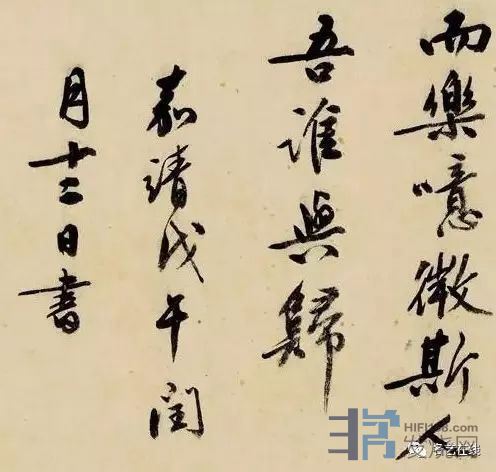 而樂噫微斯人
吾誰與歸
嘉靖戊午閏
月十二日書
艺在线